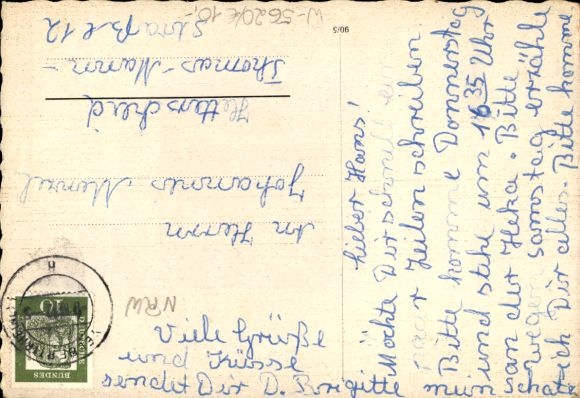 Lieber Hans!
Möchte Dir schnell ein
paar Zeilen schreiben
Bitte komme Donnerstag
und stehe um 16 35 Uhr
an der Heka. Bitte
wegen Samstag erzähle
ich Dir alles. Bitte komme
mein Schatz
Viele Grüße
und Küsse
sendet Dir D. Brigitte
An Herrn
Johannes Menzel
Hetterscheid
Thomas-Mann-
Straße 12
W-5620/k 10,-
NRW
90/5
10
DEUTSCHE
BUNDES